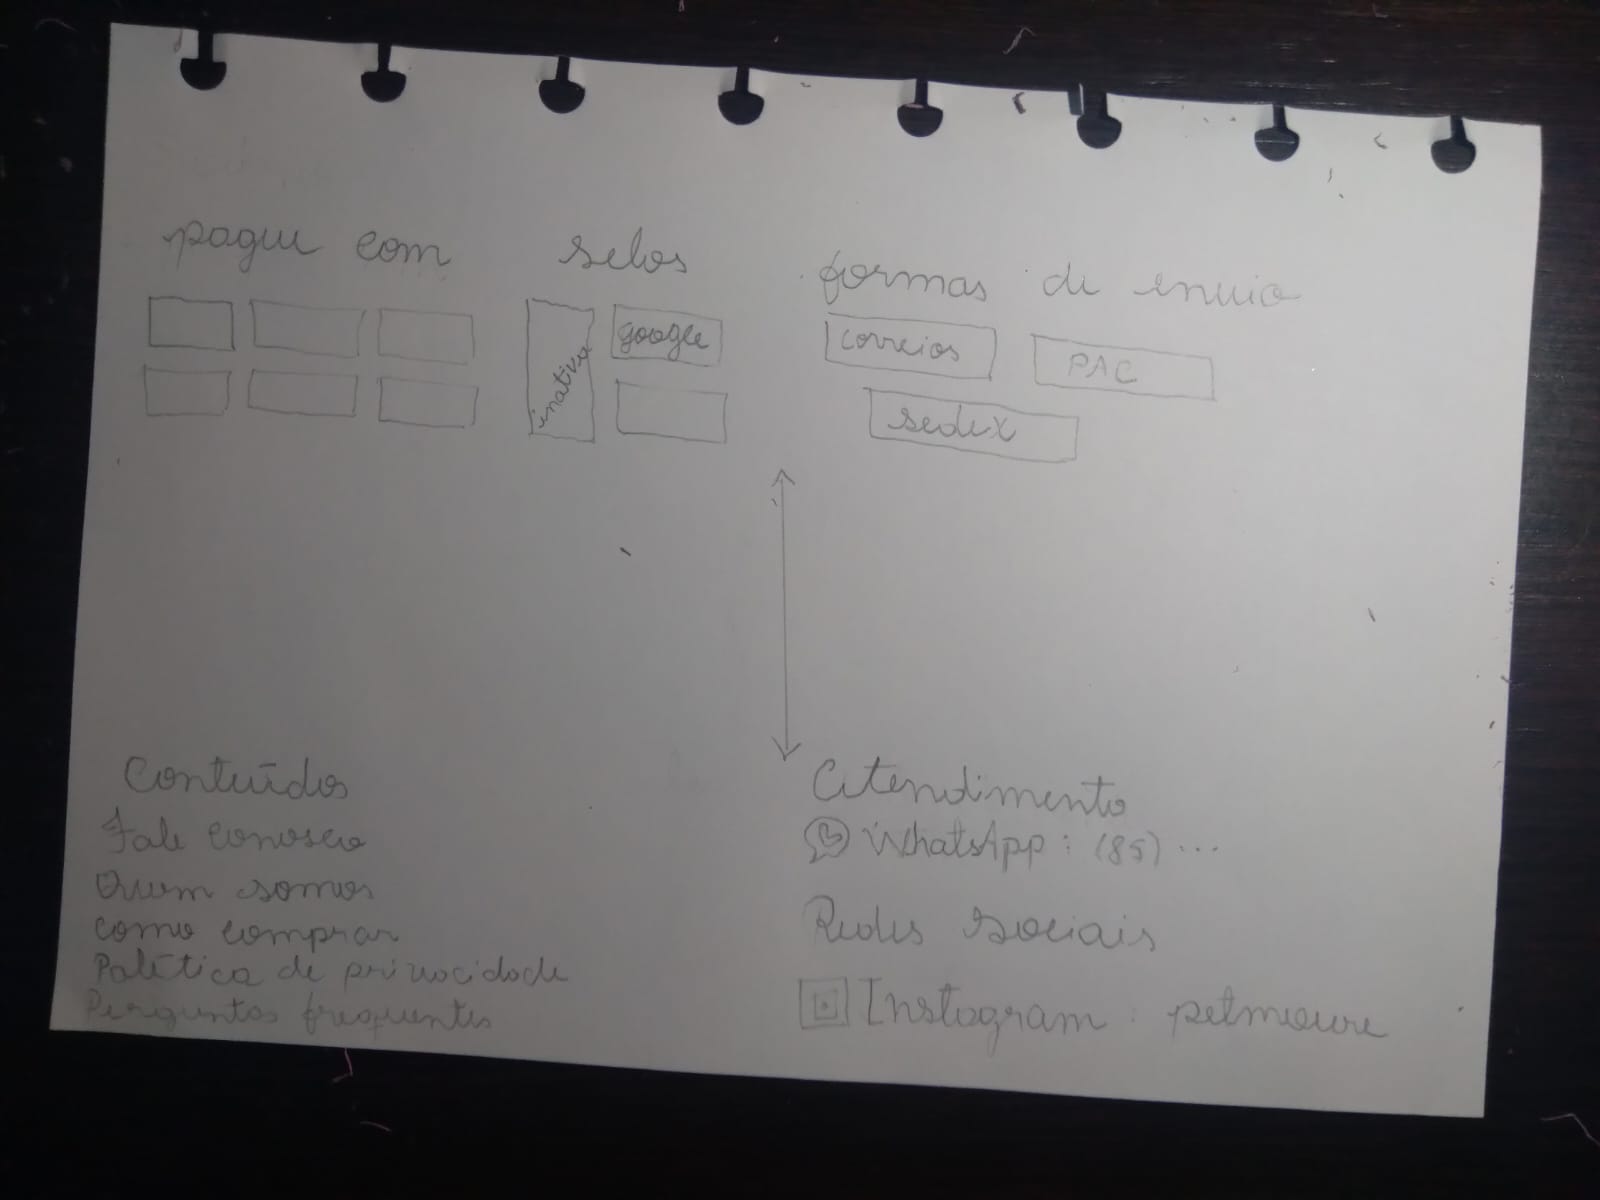 pague com
selos
formas de envio
inativa
google
correios
PAC
sedex
Conteúdos
Fale conosco
Quem somos
como comprar
Política de privacidade
Perguntas frequentes
Atendimento
WhatsApp: (85) ...
Redes sociais
Instagram: